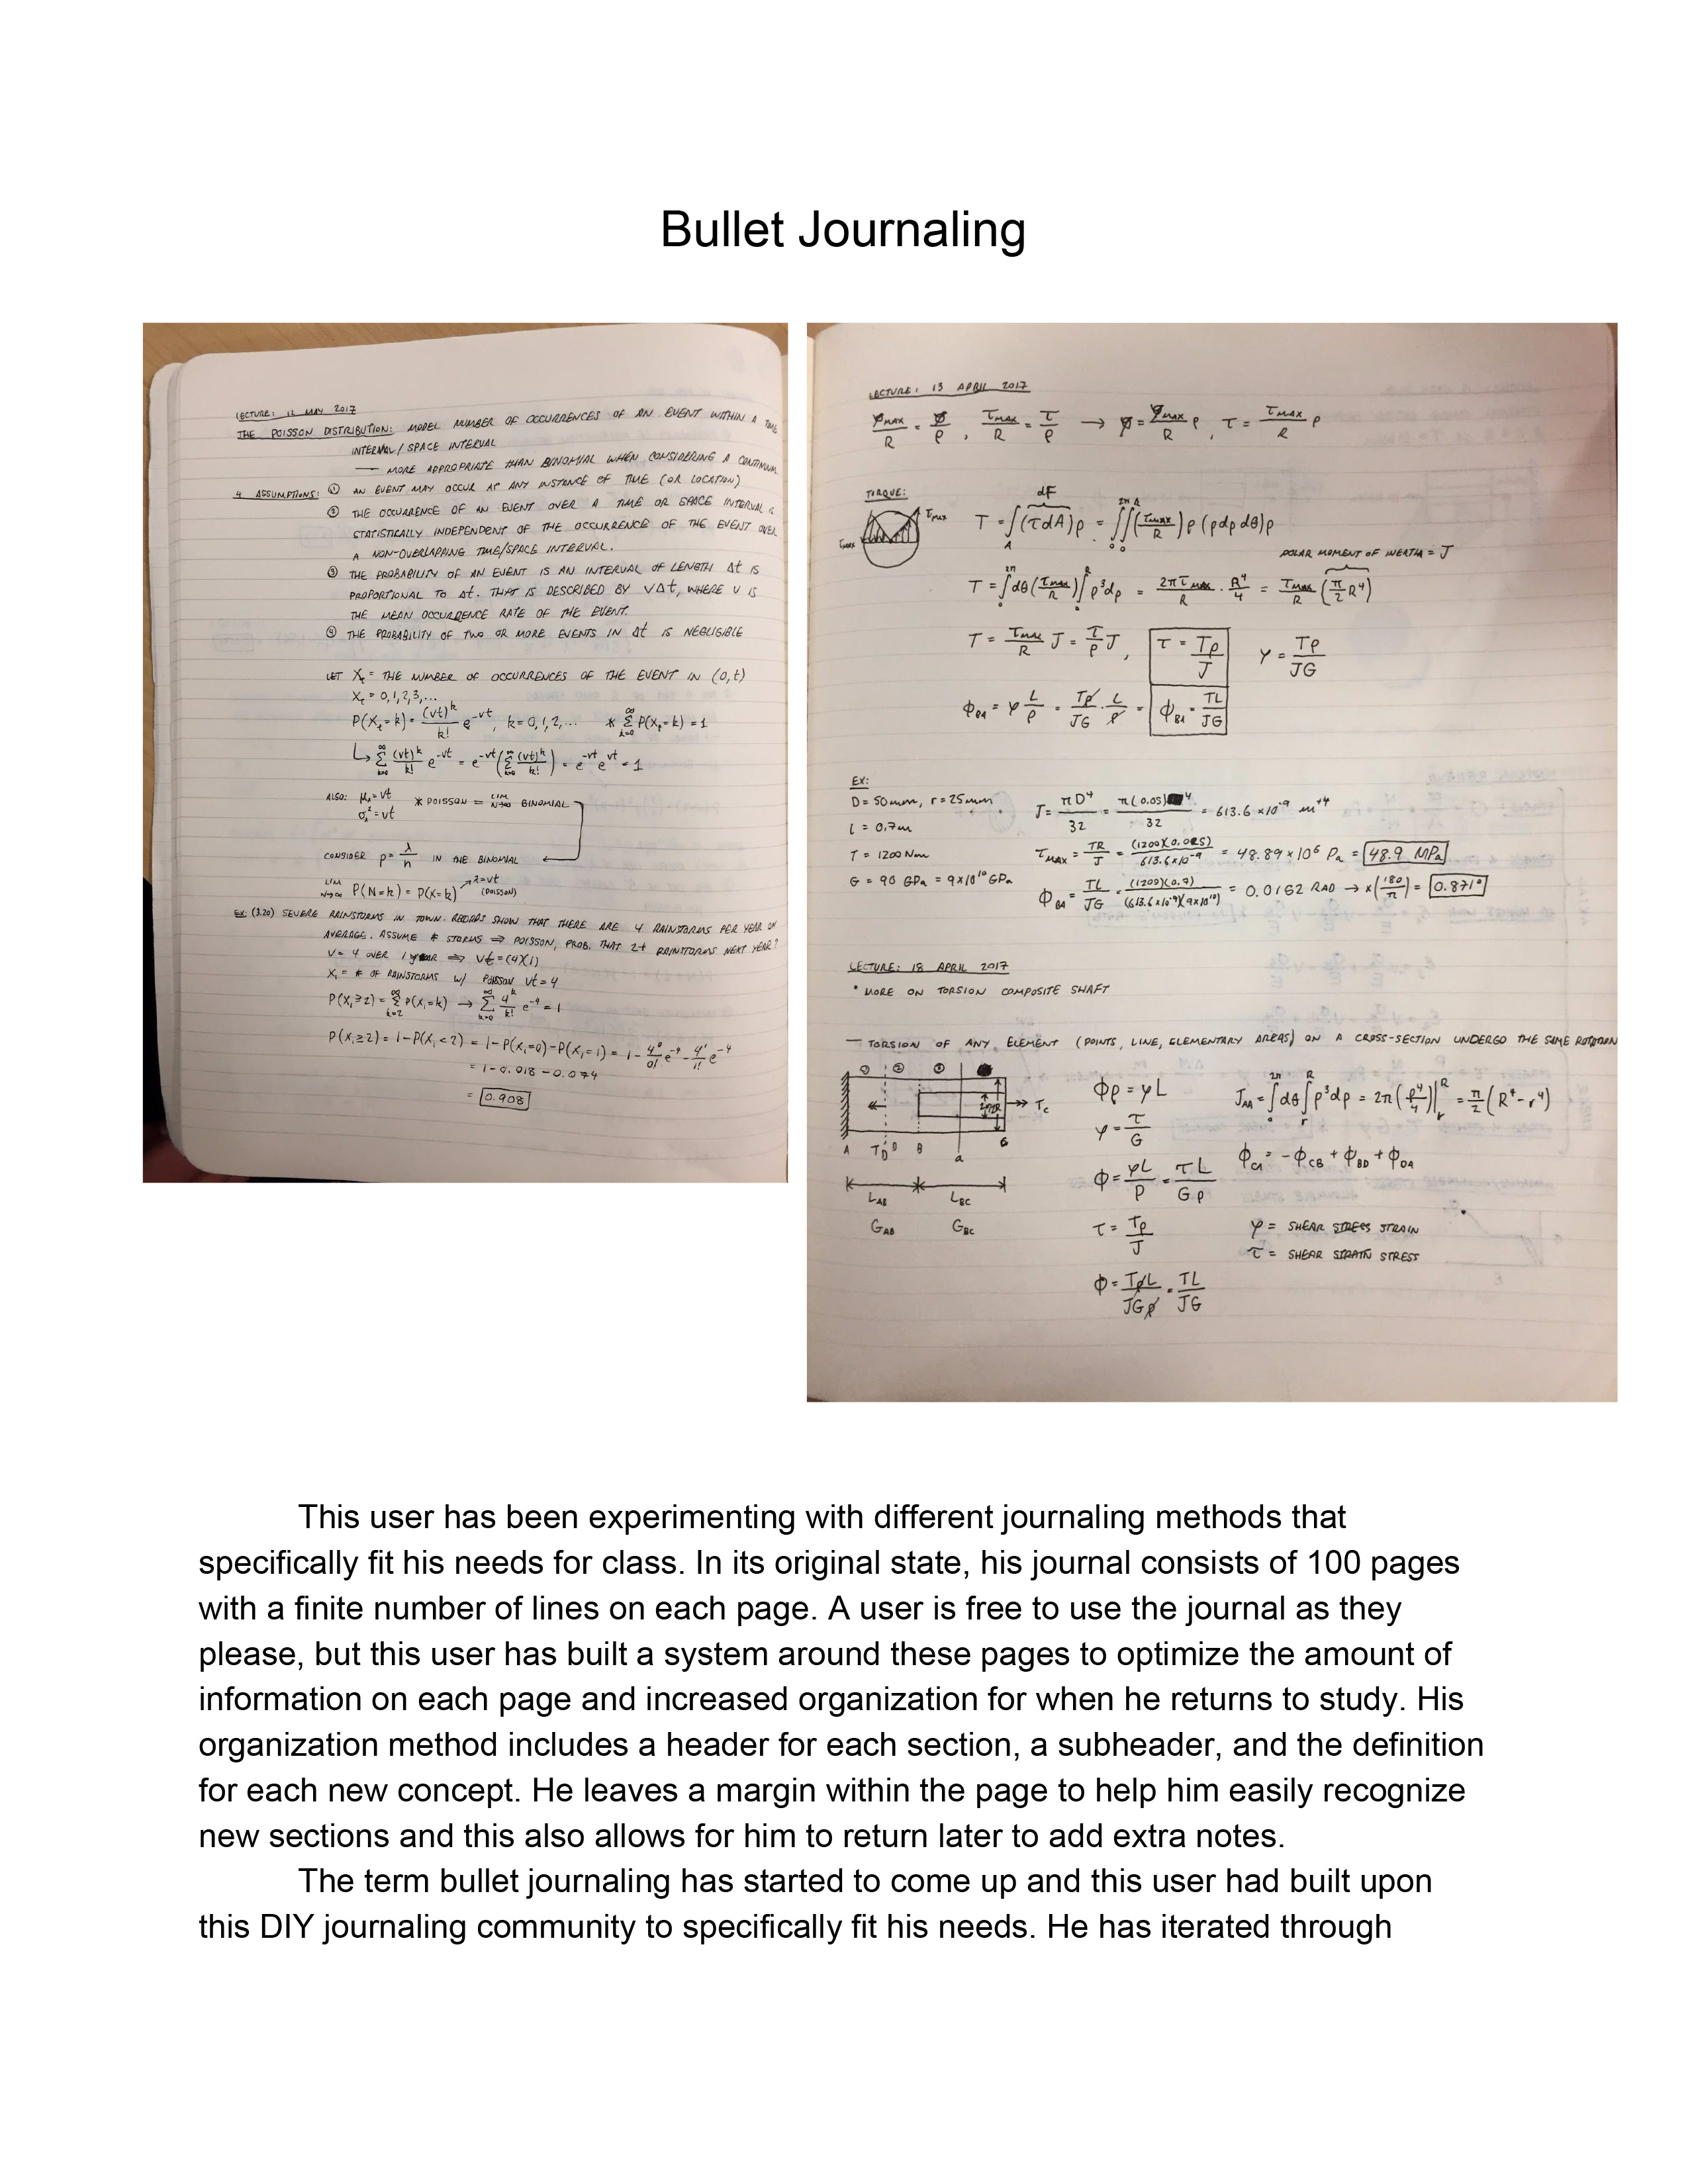 Bullet Journaling
LECTURE: 12 MAY 2017
THE POISSON DISTRIBUTION: MODEL NUMBER OF OCCURRENCES OF AN EVENT WITHIN A TIME
INTERVAL / SPACE INTERVAL
— MORE APPROPRIATE THAN BINOMIAL WHEN CONSIDERING A CONTINUUM
4 ASSUMPTIONS: ① AN EVENT MAY OCCUR AT ANY INSTANCE OF TIME (OR LOCATION)
② THE OCCURRENCE OF AN EVENT OVER A TIME OR SPACE INTERVAL IS
STATISTICALLY INDEPENDENT OF THE OCCURRENCE OF THE EVENT OVER
A NON-OVERLAPPING TIME/SPACE INTERVAL.
③ THE PROBABILITY OF AN EVENT IS AN INTERVAL OF LENGTH Δt IS
PROPORTIONAL TO Δt. THAT IS DESCRIBED BY VΔt, WHERE V IS
THE MEAN OCCURRENCE RATE OF THE EVENT.
④ THE PROBABILITY OF TWO OR MORE EVENTS IN Δt IS NEGLIGIBLE
LET Xt = THE NUMBER OF OCCURRENCES OF THE EVENT IN (0,t)
Xt = 0,1,2,3,...
P(Xt=k) = (vt)^k/k! e^-vt, k=0,1,2,... * ∑(k=0 to ∞) P(Xt=k) = 1
↳ ∑(k=0 to ∞) (vt)^k/k! e^-vt = e^-vt (∑(k=0 to ∞) (vt)^k/k!) = e^-vt e^vt = 1
ALSO: μx = vt * POISSON = LIM N→∞ BINOMIAL
σx² = vt
CONSIDER p = λ/n IN THE BINOMIAL
LIM N→∞ P(N=k) = P(X=k) λ=vt (POISSON)
EX: (3.20) SEVERE RAINSTORMS IN TOWN. RECORDS SHOW THAT THERE ARE 4 RAINSTORMS PER YEAR ON
AVERAGE. ASSUME # STORMS ⇒ POISSON, PROB. THAT 2+ RAINSTORMS NEXT YEAR?
V = 4 OVER 1 YEAR ⇒ Vt = (4)(1)
X₁ = # OF RAINSTORMS W/ POISSON Vt = 4
P(X₁≥2) = ∑(k=2 to ∞) P(X₁=k) → ∑(k=0 to ∞) 4^k/k! e^-4 = 1
P(X₁≥2) = 1-P(X₁<2) = 1-P(X₁=0)-P(X₁=1) = 1 - 4⁰/0! e^-4 - 4¹/1! e^-4
= 1-0.018-0.074
= 0.908
LECTURE: 13 APRIL 2017
γMAX/R = γ/ρ, τMAX/R = τ/ρ → γ = γMAX/R ρ, τ = τMAX/R ρ
TORQUE:
τMAX
τMAX
dF
T = ∫A (τdA)ρ = ∫0^2π ∫0^R (τMAX/R) ρ (ρdρdθ)ρ
POLAR MOMENT OF INERTIA = J
T = ∫0^2π dθ (τMAX/R) ∫0^R ρ³dρ = 2πτMAX/R · R⁴/4 = τMAX/R (π/2 R⁴)
T = τMAX/R J = τ/ρ J, τ = Tρ/J γ = Tρ/JG
ϕBA = γ L/ρ = Tρ/JG · L/ρ = ϕBA = TL/JG
EX:
D = 50mm, r = 25mm J = πD⁴/32 = π(0.05)⁴/32 = 613.6×10⁻⁹ m⁺⁴
L = 0.7m
T = 1200 Nm τMAX = TR/J = (1200)(0.025)/613.6×10⁻⁹ = 48.89×10⁶ Pa = 48.9 MPa
G = 90 GPa = 9×10¹⁰ GPa ϕBA = TL/JG = (1200)(0.7)/(613.6×10⁻⁹)(9×10¹⁰) = 0.0152 RAD → ×(180/π) = 0.871°
LECTURE: 18 APRIL 2017
• MORE ON TORSION COMPOSITE SHAFT
— TORSION OF ANY ELEMENT (POINTS, LINE, ELEMENTARY AREAS) ON A CROSS-SECTION UNDERGO THE SAME ROTATION
① ② ③
TC
A TD D B a
LAB LBC
GAB GBC
ϕρ = γL
γ = τ/G
ϕ = γL/ρ = τL/Gρ
τ = Tρ/J
ϕ = TρL/JGρ = TL/JG
JAA = ∫0^2π dθ ∫r^R ρ³dρ = 2π(ρ⁴/4)|r^R = π/2 (R⁴-r⁴)
ϕCA = -ϕCB + ϕBD + ϕDA
γ = SHEAR STRESS STRAIN
τ = SHEAR STRAIN STRESS
This user has been experimenting with different journaling methods that
specifically fit his needs for class. In its original state, his journal consists of 100 pages
with a finite number of lines on each page. A user is free to use the journal as they
please, but this user has built a system around these pages to optimize the amount of
information on each page and increased organization for when he returns to study. His
organization method includes a header for each section, a subheader, and the definition
for each new concept. He leaves a margin within the page to help him easily recognize
new sections and this also allows for him to return later to add extra notes.
The term bullet journaling has started to come up and this user had built upon
this DIY journaling community to specifically fit his needs. He has iterated through